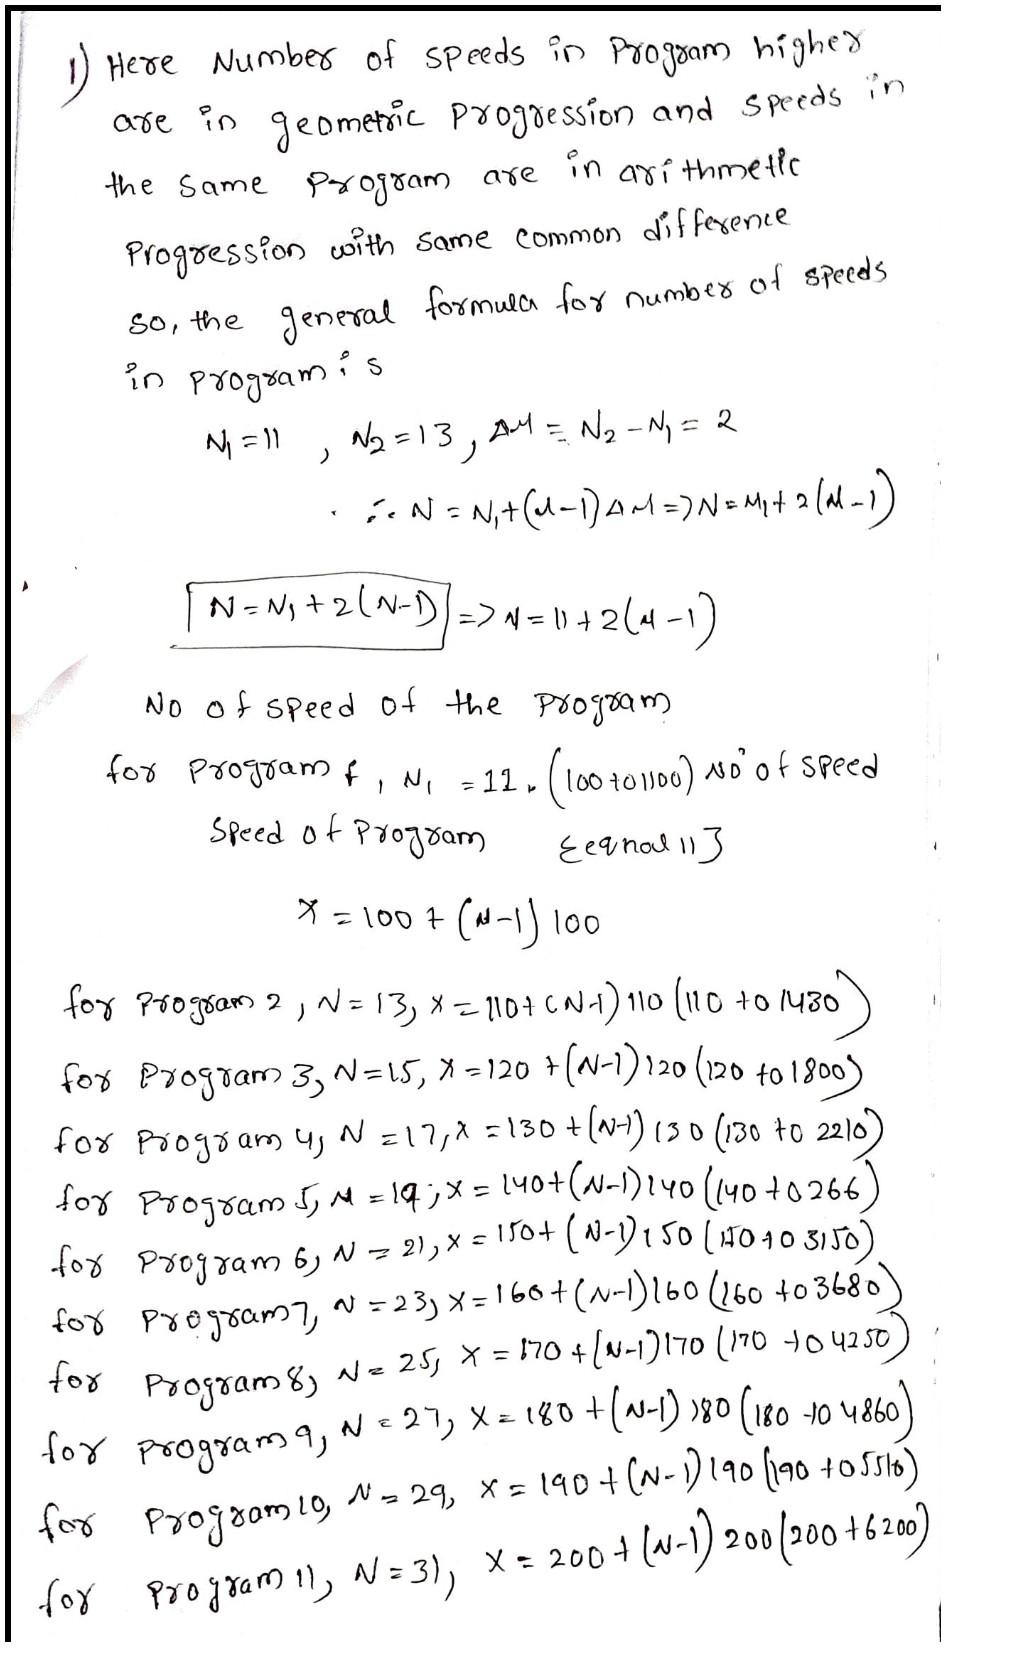 1) Here Number of speeds in Program higher
are in geometric Progression and speeds in
the same Program are in arithmetic
Progression with same common difference
so, the general formula for number of speeds
in program is
N₁ = 11 , N₂ = 13 , ΔM = N₂ - N₁ = 2
∴ N = N₁ + (M-1) ΔM => N = M₁ + 2(M-1)
N = N₁ + 2(N-1) => N = 11 + 2(M-1)
No of speed of the program
for Program 1, N₁ = 11. (100 to 1100) No of speed
Speed of Program {equal 11}
X = 100 + (N-1) 100
for Program 2, N = 13, X = 110 + (N-1) 110 (110 to 1430)
for Program 3, N = 15, X = 120 + (N-1) 120 (120 to 1800)
for Program 4, N = 17, X = 130 + (N-1) 130 (130 to 2210)
for Program 5, N = 19, X = 140 + (N-1) 140 (140 to 266)
for Program 6, N = 21, X = 150 + (N-1) 150 (150 to 3150)
for Program 7, N = 23, X = 160 + (N-1) 160 (160 to 3680)
for Program 8, N = 25, X = 170 + (N-1) 170 (170 to 4250)
for Program 9, N = 27, X = 180 + (N-1) 180 (180 to 4860)
for Program 10, N = 29, X = 190 + (N-1) 190 (190 to 5510)
for Program 11, N = 31, X = 200 + (N-1) 200 (200 to 6200)